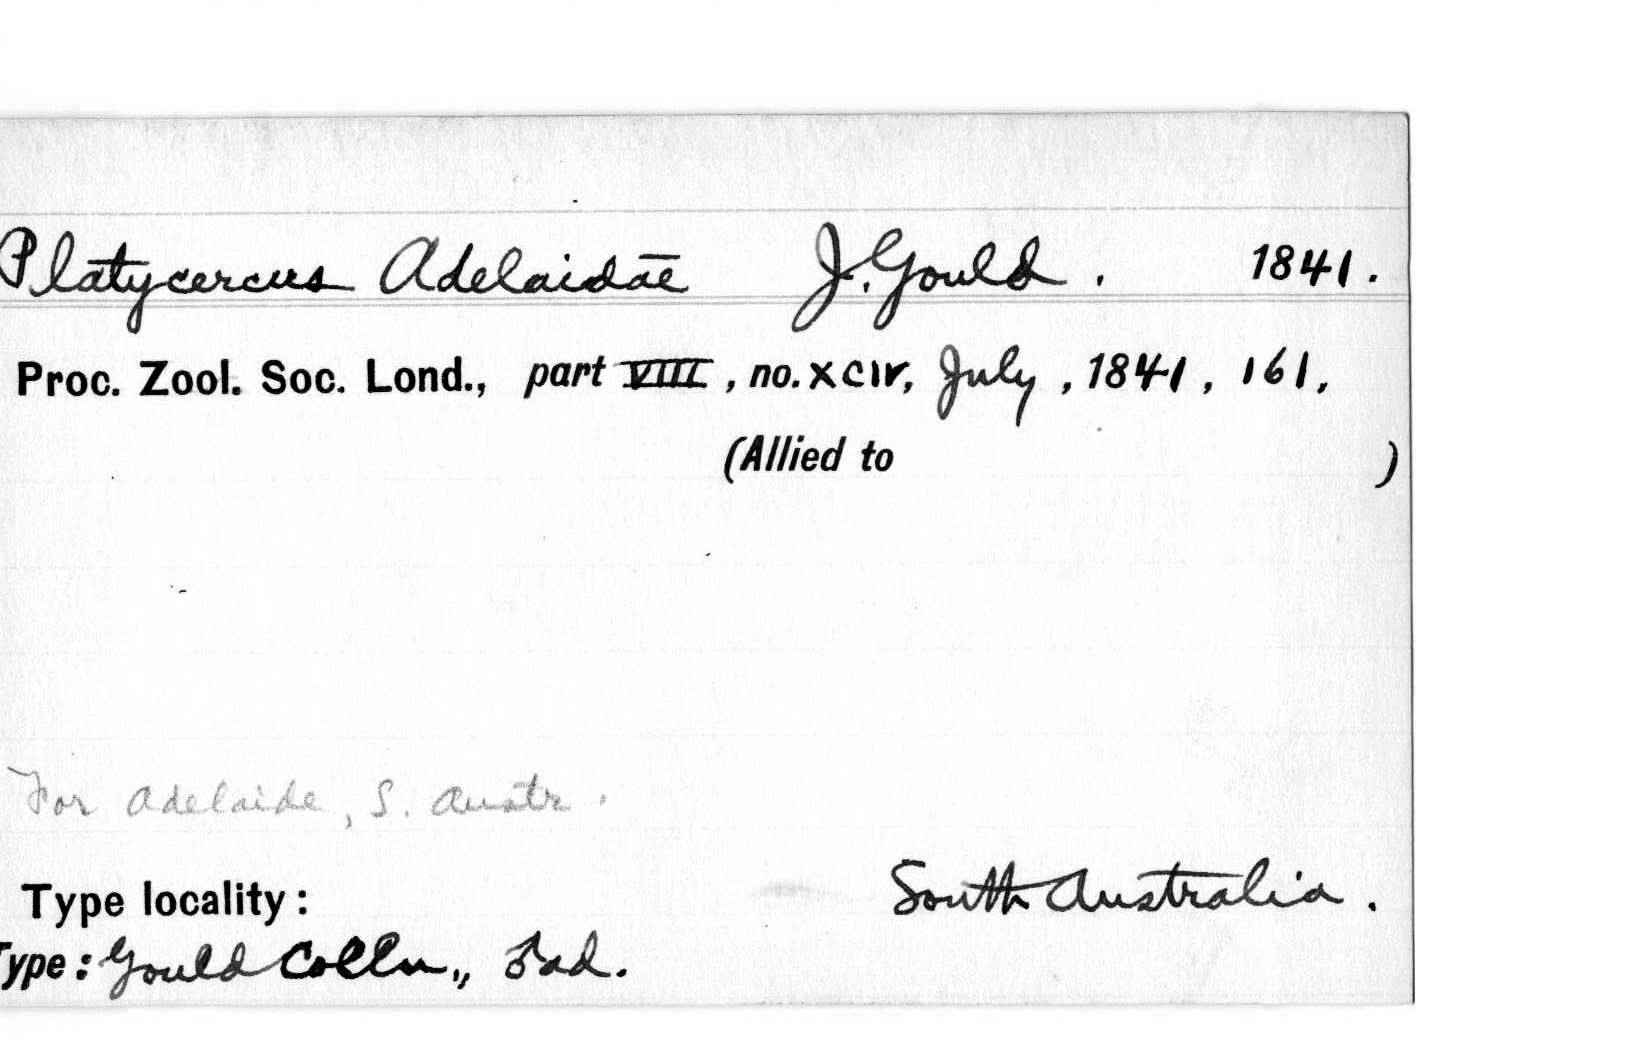 Platycercus Adelaidae J. Gould. 1841.
Proc. Zool. Soc. Lond., part VIII, no. XCIV, July, 1841, 161,
(Allied to )
For Adelaide, S. Austr.
Type locality: South Australia.
Type: Gould Colln., ♂ ad.